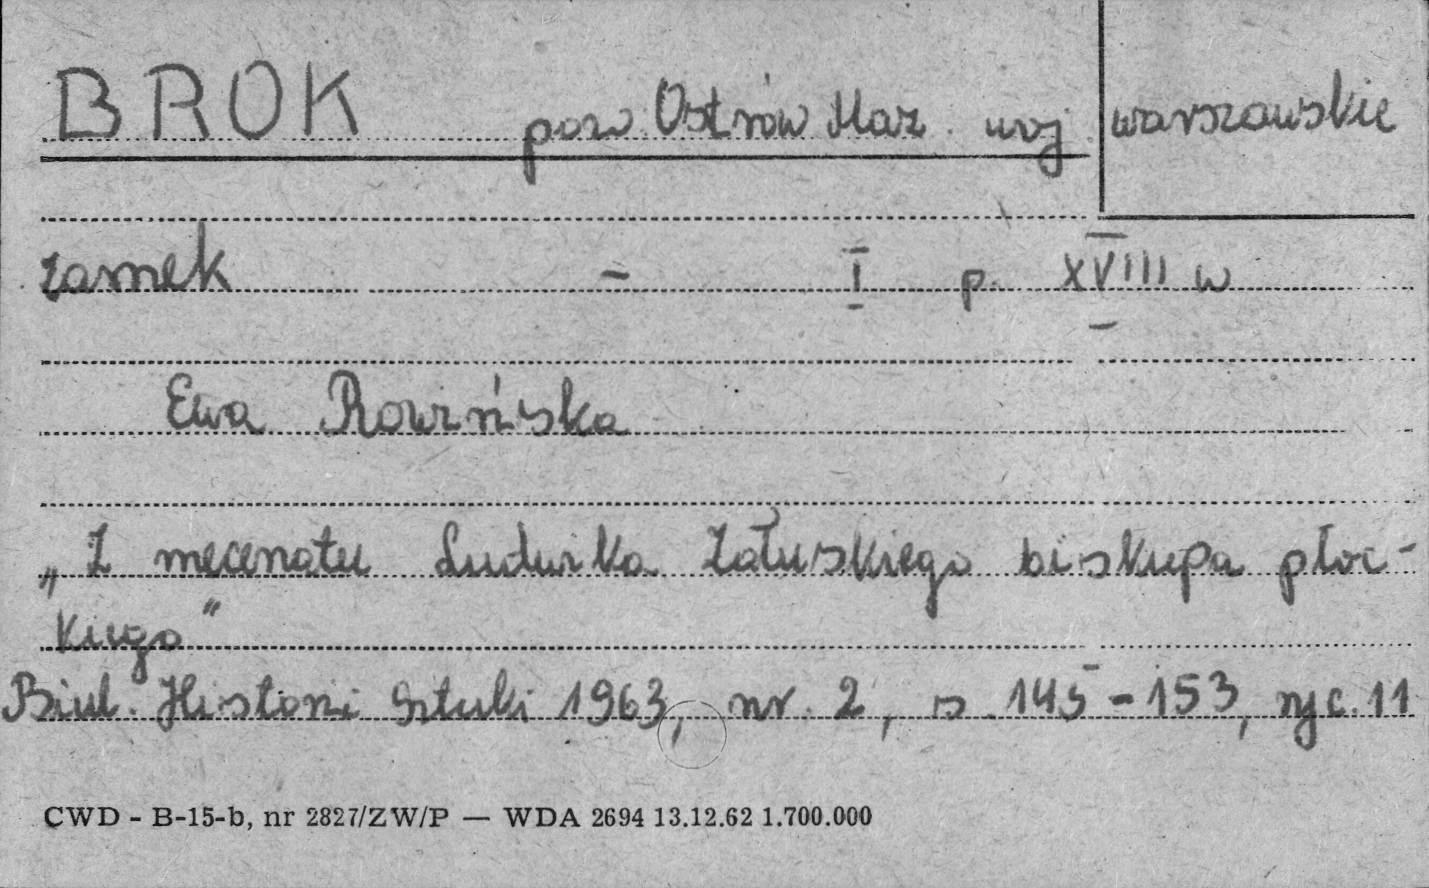 BROK pow. Ostrów Maz. woj. warszawskie
zamek - I p. XVIII w
Ewa Rowińska
„Z mecenatu Ludwika Załuskiego biskupa płoc-
kiego"
Biul. Historii Sztuki 1963, nr. 2, s. 145-153, ryc. 11
CWD - B-15-b, nr 2827/ZW/P — WDA 2694 13.12.62 1.700.000